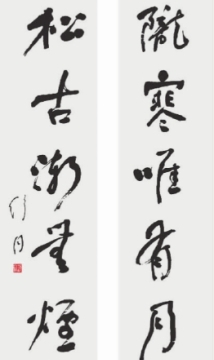 隴寒唯有月
松古漸無煙